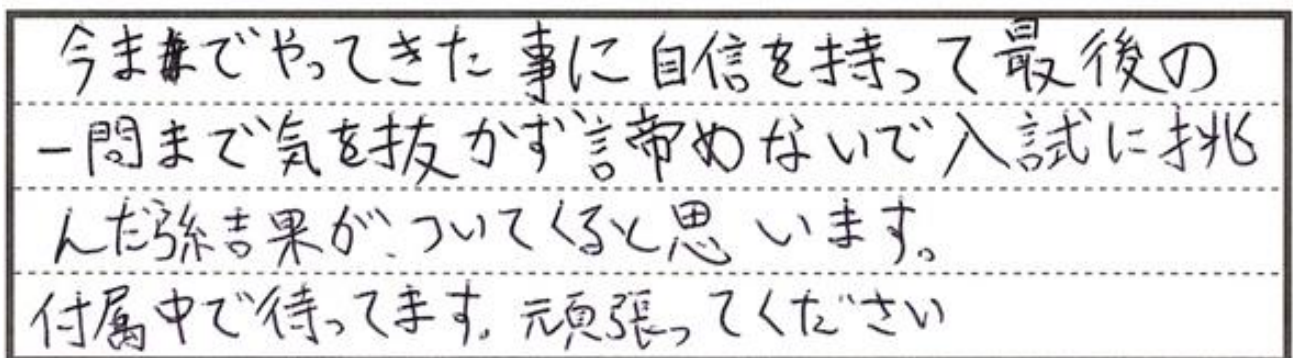 今までやってきた事に自信を持って最後の
一問まで気を抜かず諦めないで入試に挑
んだ 結果が、ついてくると思います。
付属中で待ってます。頑張ってください